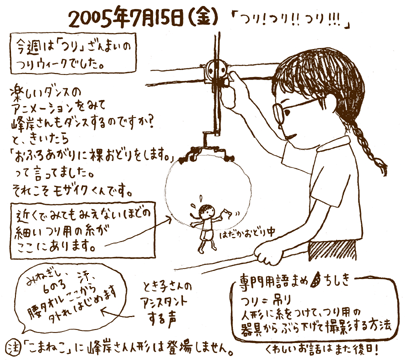 2005年7月15日(金) 「つり!つり!!つり!!!」
今週は「つり」ざんまいの
つりウィークでした。
楽しいダンスの
アニメーションをみて
峰岸さんもダンスするのですか?
と、きいたら
「おふろあがりに裸おどりをします。」
って言ってました。
それこそモザイクくんです。
近くでみてもみえないほどの
細いつり用の糸が
ここにあります。
はだかおどり中
みねぎし、
6のろ 汗、
腰タオル ここから
外れはじめます
とき子さんの
アシスタント
する声
専門用語まめちしき
つり=吊り
人形に糸をつけて、つり用の
器具からぶら下げて撮影する方法
くわしいお話はまた後日!
注 「こまねこ」に峰岸さん人形は登場しません。